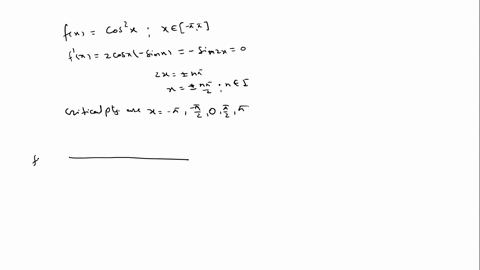 f(x) = cos²x ; x∈[-π,π]
f'(x) = 2cosx(-sinx) = -sin2x = 0
2x = ± nπ
x = ± nπ/2 ; n ∈ I
critical pts are x = -π, -π/2, 0, π/2, π
f